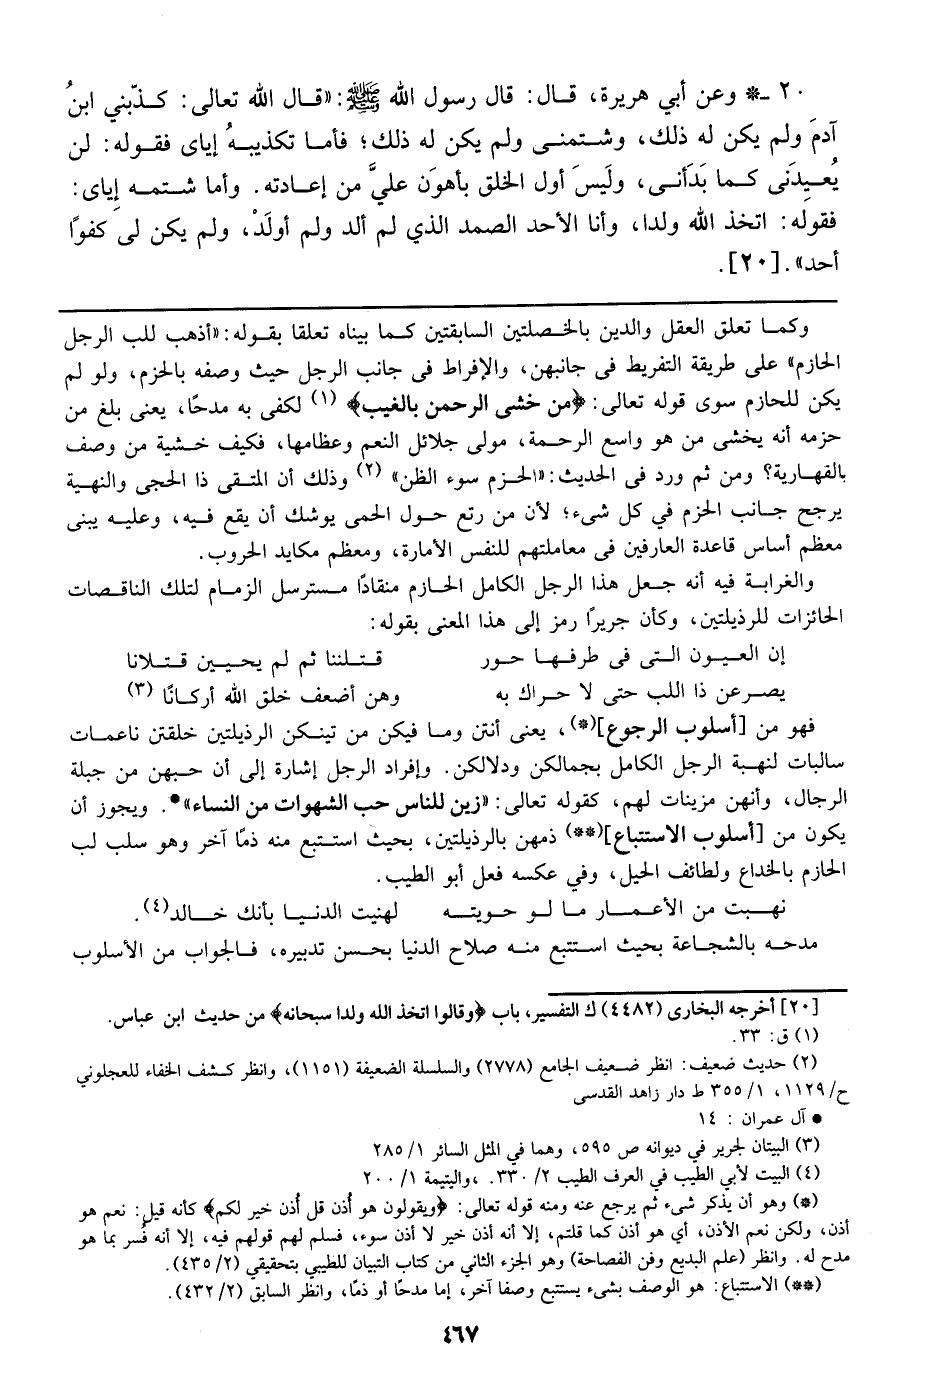 ٢٠ ـ* وعن أبي هريرة، قال: قال رسول الله ﷺ: «قال الله تعالى: كذّبني ابنُ
آدمَ ولم يكن له ذلك، وشتمنى ولم يكن له ذلك؛ فأما تكذيبهُ إياى فقوله: لن
يُعيدَنى كما بَدَأنى، ولَيسَ أول الخلق بأهوَن عليَّ من إعادته. وأما شتمه إياى:
فقولهُ: اتخذ اللهُ ولدا، وأنا الأحد الصمد الذي لم ألد ولم أولَدْ، ولم يكن لى كفوًا
أحد». [٢٠].
وكما تعلق العقل والدين بالخصلتين السابقتين كما بيناه تعلقا بقوله: «أذهب للب الرجل
الحازم» على طريقة التفريط فى جانبهن، والإفراط فى جانب الرجل حيث وصفه بالحزم، ولو لم
يكن للحازم سوى قوله تعالى: ﴿من خشى الرحمن بالغيب﴾ (١) لكفى به مدحًا، يعنى بلغ من
حزمه أنه يخشى من هو واسع الرحمة، مولى جلائل النعم وعظامها، فكيف خشية من وصف
بالقهارية؟ ومن ثم ورد فى الحديث: «الحزم سوء الظن» (٢) وذلك أن المتقى ذا الحجى والنهية
يرجح جانب الحزم في كل شىء؛ لأن من رتع حول الحمى يوشك أن يقع فيه، وعليه يبنى
معظم أساس قاعدة العارفين فى معاملتهم للنفس الأمارة، ومعظم مكايد الحروب.
والغرابة فيه أنه جعل هذا الرجل الكامل الحازم منقادًا مسترسل الزمام لتلك الناقصات
الحائزات للرذيلتين، وكأن جريرًا رمز إلى هذا المعنى بقوله:
إن العيون التى فى طرفها حور قتلننا ثم لم يحيين قتلانا
يصرعن ذا اللب حتى لا حراك به وهن أضعف خلق الله أركانًا (٣)
فهو من [أسلوب الرجوع](*)، يعنى أنتن وما فيكن من تينكن الرذيلتين خلقتن ناعمات
سالبات لنهبة الرجل الكامل بجمالكن ودلالكن. وإفراد الرجل إشارة إلى أن حبهن من جبلة
الرجال، وأنهن مزينات لهم، كقوله تعالى: «زين للناس حب الشهوات من النساء»•. ويجوز أن
يكون من [أسلوب الاستتباع](**) ذمهن بالرذيلتين، بحيث استتبع منه ذمًا آخر وهو سلب لب
الحازم بالخداع ولطائف الحيل، وفي عكسه فعل أبو الطيب.
نهبت من الأعمار ما لو حويته لهنيت الدنيا بأنك خالد(٤).
مدحه بالشجاعة بحيث استتبع منه صلاح الدنيا بحسن تدبيره، فالجواب من الأسلوب
[٢٠] أخرجه البخارى (٤٤٨٢) ك التفسير، باب ﴿وقالوا اتخذ الله ولدا سبحانه﴾ من حديث ابن عباس.
(١) ق: ٣٣.
(٢) حديث ضعيف: انظر ضعيف الجامع (٢٧٧٨) والسلسلة الضعيفة (١١٥١)، وانظر كشف الخفاء للعجلوني
ح/١١٢٩، ١/ ٣٥٥ ط دار زاهد القدسى
• آل عمران : ١٤
(٣) البيتان لجرير في ديوانه ص ٥٩٥، وهما في المثل السائر ١/ ٢٨٥
(٤) البيت لأبي الطيب في العرف الطيب ٢/ ٣٣٠. ،واليتيمة ١/ ٢٠٠
(*) وهو أن يذكر شىء ثم يرجع عنه ومنه قوله تعالى: ﴿ويقولون هو أُذن قل أُذن خير لكم﴾ كأنه قيل: نعم هو
أذن، ولكن نعم الأذن، أي هو أذن كما قلتم، إلا أنه أذن خير لا أذن سوء، فسلم لهم قولهم فيه، إلا أنه فُسر بما هو
مدح له. وانظر (علم البديع وفن الفصاحة) وهو الجزء الثاني من كتاب التبيان للطيبي بتحقيقي (٢/ ٤٣٥).
(**) الاستتباع: هو الوصف بشىء يستتبع وصفا آخر، إما مدحًا أو ذمًا، وانظر السابق (٢/ ٤٣٢).
٤٦٧